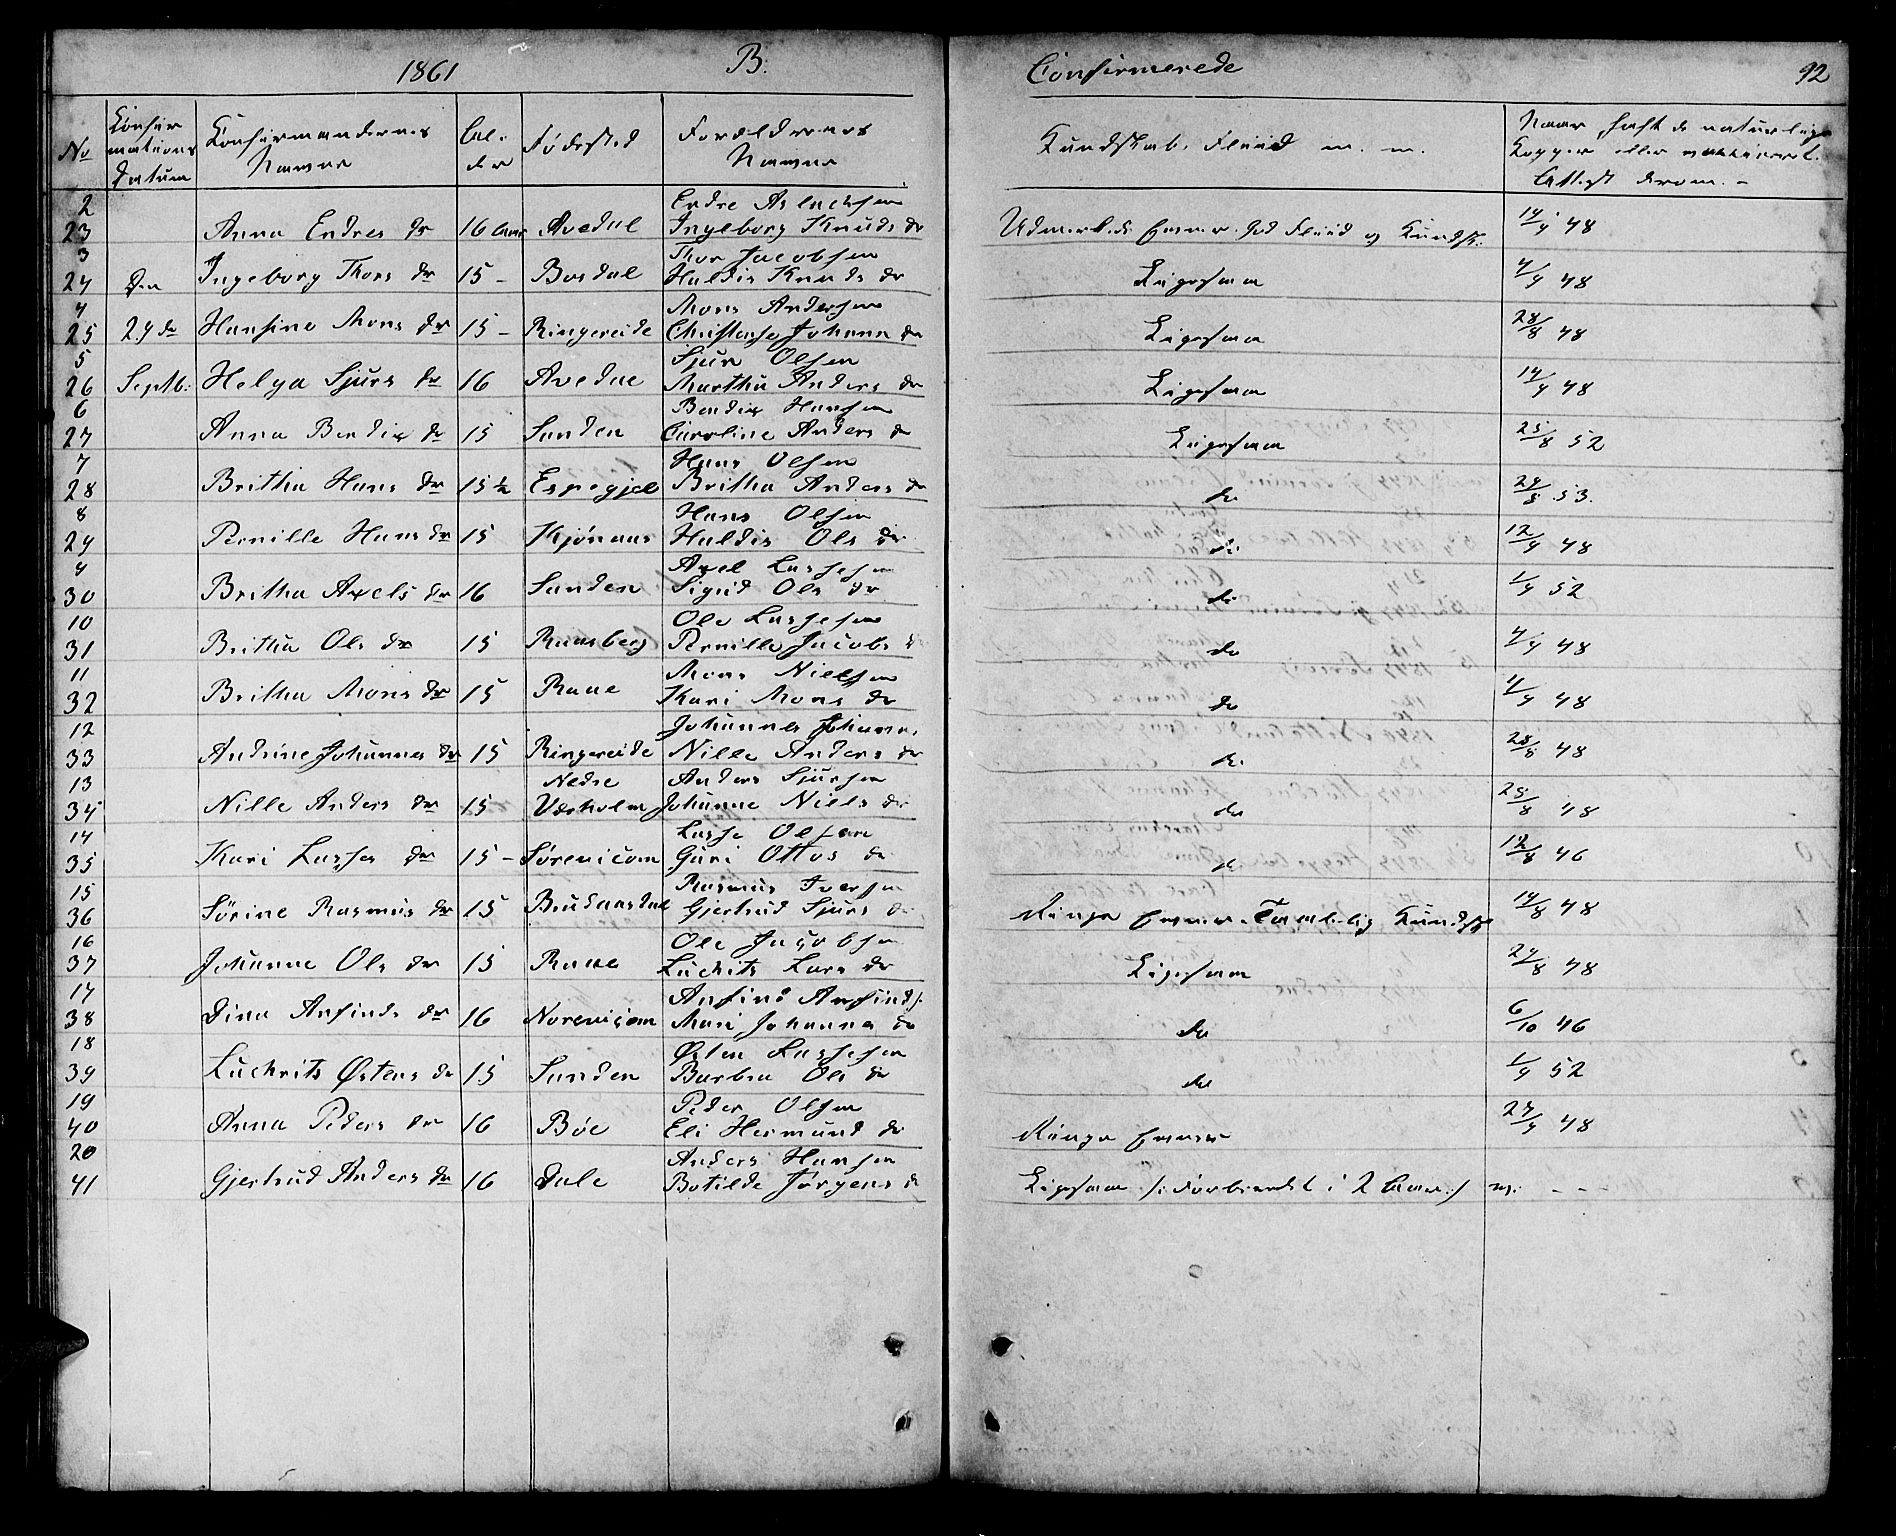 1861 B. Confirmerede 92
No Konfirmations Datum Konfirmandernes Navne Alder Fødested Forældrenes Navne Kundskab. Fliid m. m. Naar haft de naturlige Kopper eller vaccineret. Attest derom. -
2 Endre Aslachsen
23 Anna Endres dr 16 Aar Avedal Ingeborg Knuds dr Udmerkede Evner. God Fliid og Kundsk. 14/9 48
3 Thor Jacobsen
24 Den Ingeborg Thors dr 15 - Bosdal Haldis Knuds dr Ligesaa 4/9 48
4 Mons Andersen
25 29de Hansine Mons dr 15 - Ringereide Johanne dr Ligesaa 28/8 48
5 Sjur Olsen
26 Septb: Helga Sjurs dr 16 Avedal Martha Anders dr Ligesaa 14/9 48
6 Bendix Hansen
27 Anna Bendix dr 15 Sanden Caroline Anders dr Ligesaa 25/8 52
7 Hans Olsen
28 Britha Hans dr 15 ½ Espegjel Britha Anders dr do 24/8 53.
8 Hans Olsen
29 Pernille Hans dr 15 Kjønaas Haldis Ols dr do 12/9 48
9 Axel Lassesen
30 Britha Axels dr 16 Sanden Sigrid Ols dr do 1/9 52
10 Ole Lassesen
31 Britha Ols dr 15 Raasberg Pernille Jacobs dr do 4/9 48
11 Mons Nielsen
32 Britha Mons dr 15 Raae Kari Mons dr do 4/9 48
12 Johannes Johanns.
33 Andrine Johannes dr 15 Ringereide Nille Anders dr do 28/8 48
13 Nedre Anders Sjursen
34 Nille Anders dr 15 Væsholm Johanne Niels dr do 25/8 48
14 Lasse Olsen
35 Kari Lasses dr 15 - Sørevigom Guri Ottos dr do 12/8 46
15 Rasmus Iversen
36 Sørine Rasmus dr 15 Gjertrud Sjurs dr Ringe Evner. Taalelig Kundsk 14/8 48
16 Ole Jacobsen
37 Johanne Ols dr 15 Raae Luckrits Lars dr Ligesaa 24/8 48
17 Ansind Ansinds.
38 Dina Ansinds dr 16 Norevigom Mari Johannes dr do 6/10 46
18 Østen Lassesen
39 Luckrits Østens dr 15 Sanden Barbra Ols dr do 1/9 52
19 Peder Olsen
40 Anna Peders dr 16 Bøe Eli Hermund dr Ringe Evner 24/9 48
20 Anders Hansen
41 Gjertrud Anders dr 16 Dale Botilde Jørgens d Ligesaa /: Forberedt i 2 Aar :/ - - -